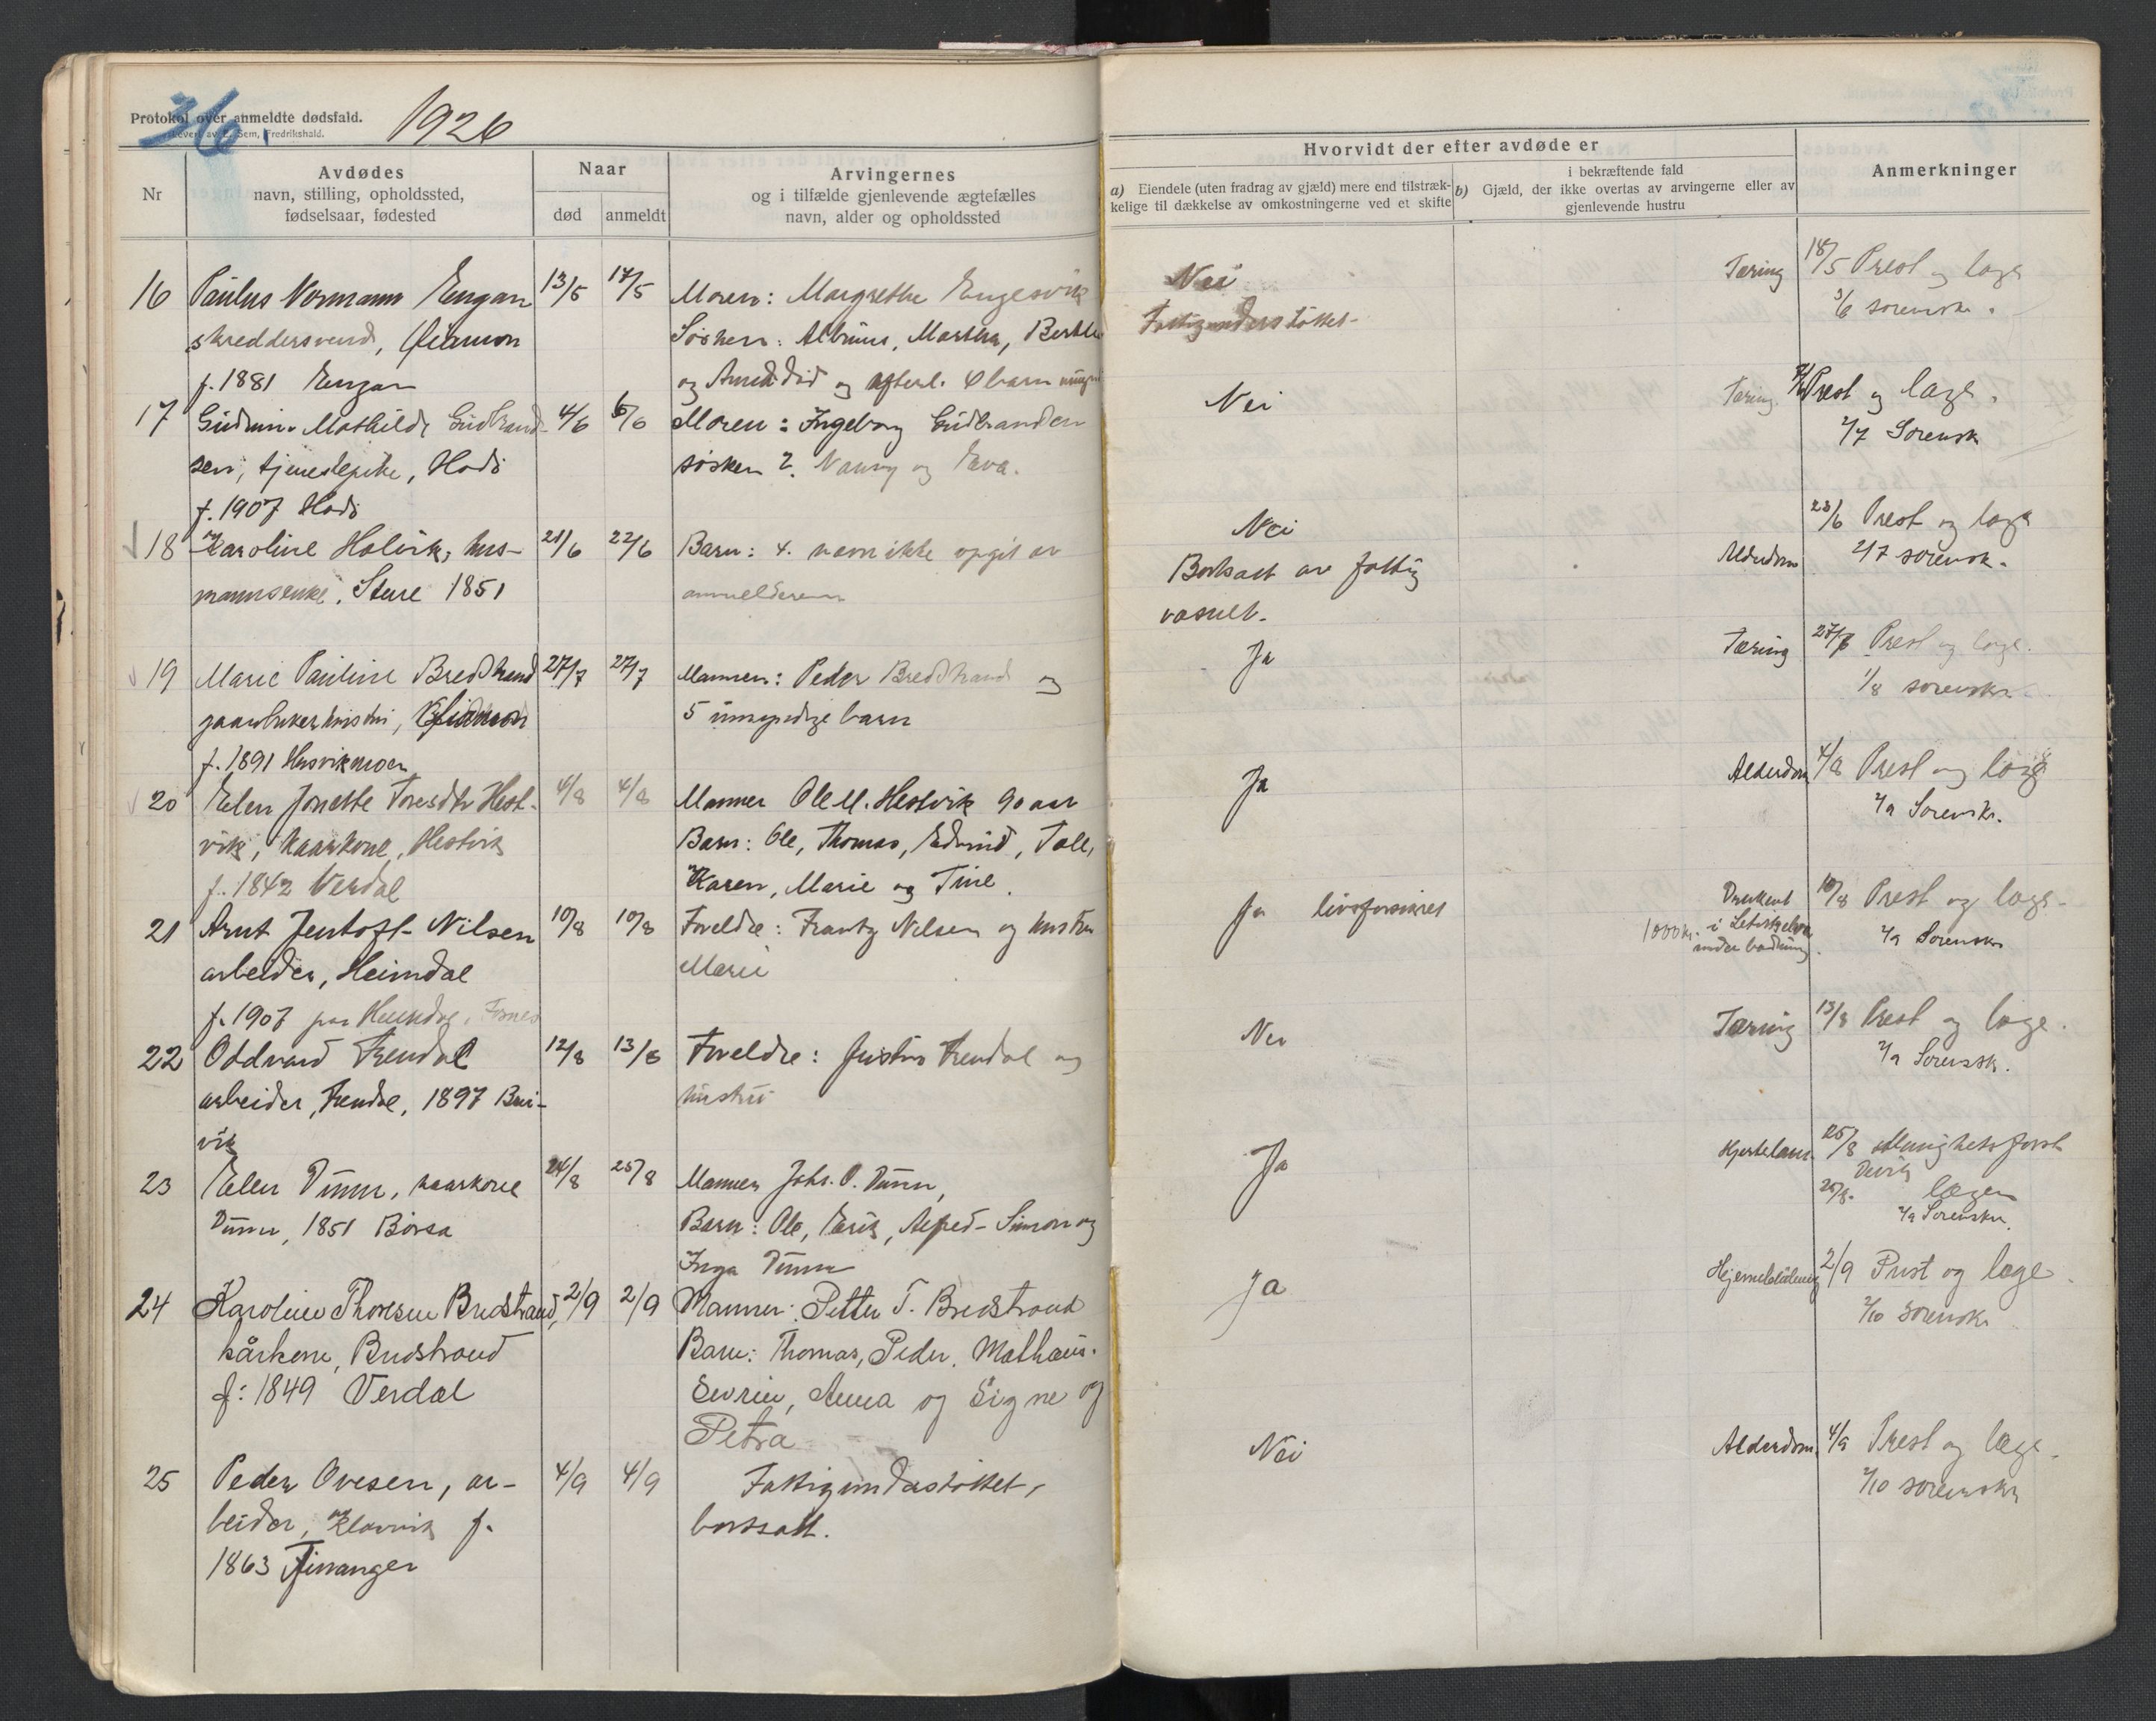 36.
Protokol over anmeldte dødsfald.
1926
Nr
Avdødes
navn, stilling, opholdssted,
fødselsaar, fødested
Naar
død
anmeldt
Arvingernes
og i tilfælde gjenlevende ægtefælles
navn, alder og opholdssted
Hvorvidt der efter avdøde er
a) Eiendele (uten fradrag av gjæld) mere end tilstræk-
kelige til dækkelse av omkostningerne ved et skifte
i bekræftende fald
b) Gjæld, der ikke overtas av arvingerne eller av
gjenlevende hustru
Anmerkninger
16 Paulus Normann Engan 13/5 17/5 Moren: Margrethe Engesvik Nei Tæring 18/5 Prest og læge
skreddersvend, Søsken: Albinus, Martha, Berthe Fattigunderstøttet 3/6 sorensk.
f. 1881 Engan og død og efterl. barn
17 Mathilde Gudbrand- 4/6 6/6 Moren: Ingeborg Gudbrandsen Nei Tæring Prest og læge.
sen, tjenestepike, Hodø søsken 2. Nanny og Eva. 2/7 Sorensk
f. 1907 Hodø
18 Karoline Holvik, hus- 21/6 22/6 Barn: 4. navn ikke opgit av Nei Alderdom 23/6 Prest og læge
mannsenke, Sture 1851 anmelderen Bortsatt av fattig 2/7 sorensk.
vesnet.
19 Marie Pauline Bredstrand 27/7 27/7 Mannen: Peder Bredstrand og Ja Tæring Prest og læge.
gaardbrukerhustru, 5 umyndige barn 1/8 sorenskr.
f. 1891 Husvikmoen
20 Elen Jonette Toresdtr Hest- 4/8 4/8 Mannen Ole M. Hestvik 90 aar Ja Alderdom 4/8 Prest og læge
vik, kaarkone, Hestvik Barn: Ole, Thomas, Edvind, Tall, 2/9 Sorenskr.
f. 1842 Verdal Karen, Marie og Tine.
21 Arnt Jentoft Nilsen 10/8 10/8 Foreldre: Frantz Nilsen og hustru Ja livsforsikret 1000 kr. Druknet 10/8 Prest og læge
arbeider, Heimdal Marie i under badning 2/9 Sorenskr
f. 1907 paa Heimdal, Fosnes
22 Oddvard Frendal 12/8 13/8 Foreldre: Justin Frendal og Nei Tæring 13/8 Prest og læge.
arbeider, Frendal, 1897 Bui- hustru 2/9 Sorenskr.
vik
23 Ellen Duun, kaarkone 24/8 25/8 Mannen Johs. O. Duun, Ja 25/8 Menighetsforst
Duun, 1851 Børsa Barn: Ole, Eirik, Alfred, Simon og 25/8. lægen
Inga Duun 2/9 Sorenskr.
24 Karoline Thoresen Bredstrand, 2/9 2/9 Mannen: Petter T. Bredstrand Ja 2/9 Prest og læge.
kårkone, Bredstrand Barn: Thomas, Peder, Mathæus. 2/10 Sorenskr
f: 1849 Verdal Sevrin, Anna og Signe og
Petra
25 Peder Ovesen, ar- 4/9 4/9 Fattigunderstøttet, Nei Alderdom 4/9 Prest og læge.
beider, f. bortsatt. 2/10 sorenskr
1863 Finanger